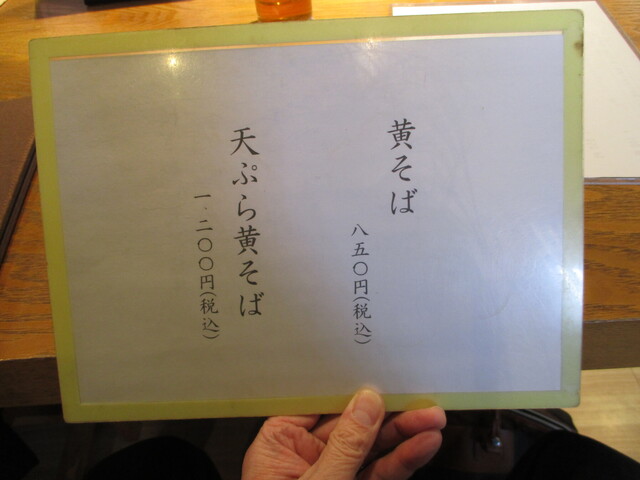 黄そば
八五〇円(税込)
天ぷら黄そば
一、二〇〇円(税込)